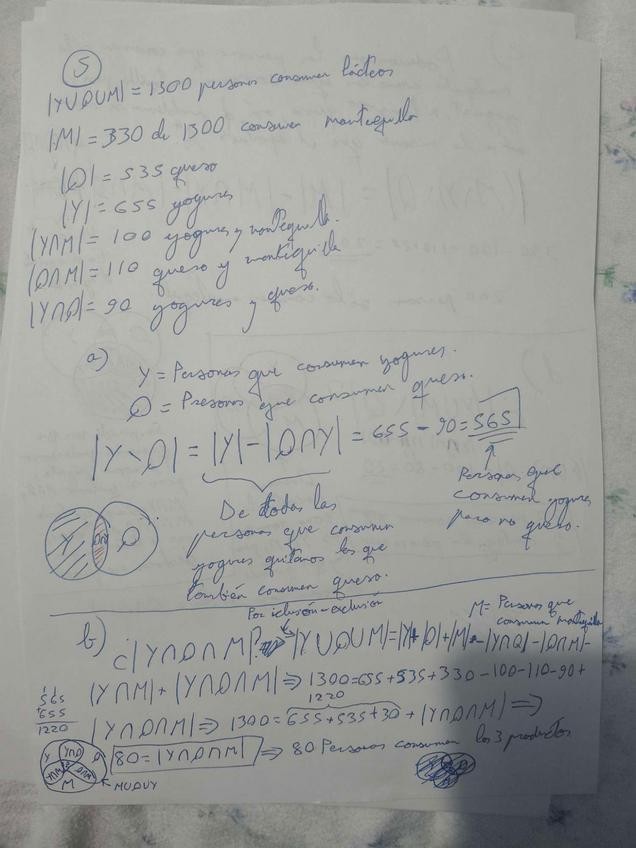 5
|Y∪Q∪M| = 1300 personas consumen lácteos
|M| = 330 de 1300 consumen mantequilla
|Q| = 535 queso
|Y| = 655 yogures
|Y∩M| = 100 yogures y mantequilla.
|Q∩M| = 110 queso y mantequilla
|Y∩Q| = 90 yogures y queso.
a) Y = Personas que consumen yogures.
Q = Presonas que consumen queso.
|Y∖Q| = |Y| - |Q∩Y| = 655 - 90 = 565
De todas las
personas que consumen
yogures quitamos las que
también consumen queso.
Personas que
consumen yogures
pero no queso.
Y Q∩Y Q
Por iclusión-exclusión
M = Personas que
consumen mantequilla
b) ¿|Y∩Q∩M|? |Y∪Q∪M| = |Y|+|Q|+|M| - |Y∩Q| - |Q∩M| -
|Y∩M| + |Y∩Q∩M| ⇒ 1300 = 655 + 535 + 330 - 100 - 110 - 90 +
|Y∩Q∩M| ⇒ 1300 = 655 + 535 + 30 + |Y∩Q∩M| ⇒
1220
80 = |Y∩Q∩M| ⇒ 80 Personas consumen los 3 productos
565
655
1220
Y Y∩Q Q
Y∩M Q∩M
M
M∪Q∪Y